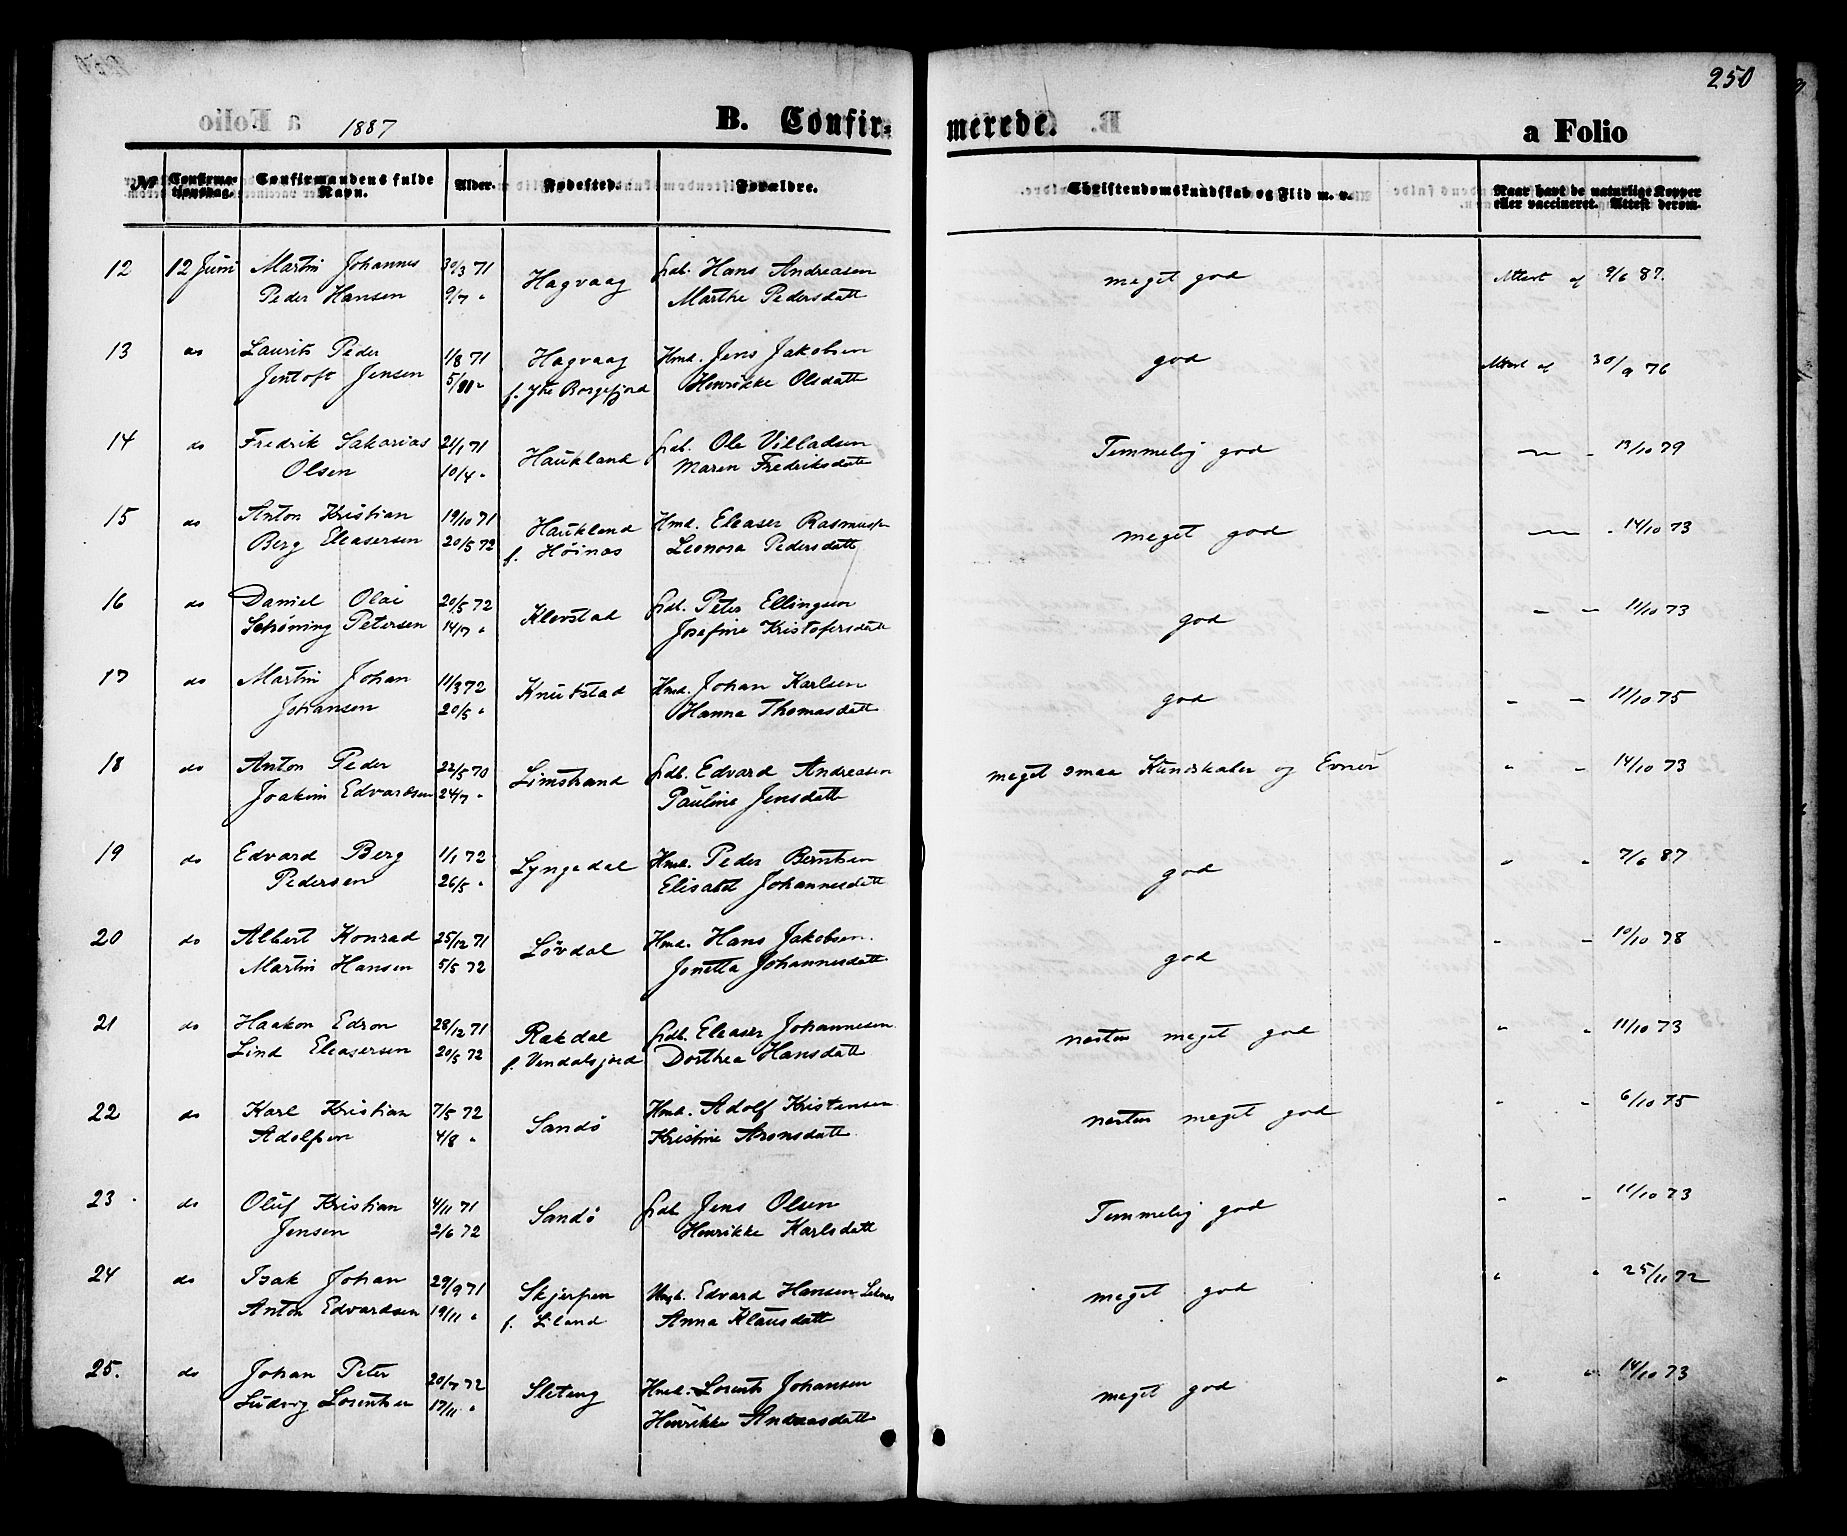 250
1887
B. Confirmerede.
a Folio
No Confirmationsdag. Confirmandens fulde Navn. Alder. Fødested. Forældre. Christendomskundskab og Flid m. v. Naar havt de naturlige Kopper eller vaccineret. Attest derom.
12 12 Juni Martin Johannes 30/3 71 Hagvaag Gdb. Hans Andreasen meget god Attest af 9/6 87.
Peder Hansen 9/7 " Marthe Pedersdatt
13 do Laurits Peder 1/8 71 Hagvaag Hmd. Jens Jakobsen god Attest af 30/9 76
Jentoft Jensen f. Ytre Borgefjord Henrikke Olsdatt
14 do Fredrik Sakarias 21/1 71 Haukland Gdb. Ole Villadsen Temmelig god — - 13/10 79
Olsen 10/4 - Maren Fredriksdatt
15 do Anton Kristian 19/10 71 Haukland Hmd. Eleaser Rasmuss meget god — - 14/10 73
Berg Eleasersen 20/5 72 f. Høinas Leonora Pedersdatt
16 do Daniel Olai 20/5 72 Klevstad Gdb. Peter Ellingsen god - - 11/10 73
Schøning Petersen 14/7 " Josefine Kristofersdatt
17 do Martin Johan 11/3 72 Knutstad Hmd. Johan Karlsen god - - 11/10 75
Johansen 20/5 " Hanna Thomasdatt
18 do Anton Peder 22/5 70 Limstrand Gdb. Edvard Andreasen meget smaa Kundskaber og Evner " - 14/10 73
Joakim Edvardsen 24/7 " Pauline Jensdatt
19 do Edvard Berg 1/1 72 Lyngedal Hmd. Peder Berntsen god " " 7/6 87
Pedersen 26/5 " Elisabet Johannesdatt
20 do Albert Konrad 25/12 71 Løvdal Hmd. Hans Jakobsen. god " - 10/10 78
Martin Hansen 5/5 72 Jonetta Johannesdatt
21 do Haakon Edson 28/12 71 Rakdal Gdb. Eleaser Johannesen. nesten meget god " " 11/10 73
Lind Eleasersen 20/5 72 f. Vendalsjord Dorthea Hansdatt
22 do Karl Kristian 7/5 72 Sandö Hmd. Adolf Kristensen nesten meget god " - 6/10 75
Adolfsen 4/8 " Kristine Aronsdatt.
23 do Oluf Kristian 4/11 71 Sandö Gdb Jens Olsen Temmelig god " - 11/10 73
Jensen 2/6 72 Henrikke Karlsdatt
24 do Isak Johan 29/9 71 Skjerpen Edvard Hansen Leknes meget god " " 25/11 72
Anton Edvardsen 19/11 " f. Liland Anna Klausdatt
25. do Johan Peter 20/7 72 Sleteng Hmd. Lorents Johansen meget god " " 14/10 73
Ludvig Lorentsen 17/11 " Henrikke Andreasdatt